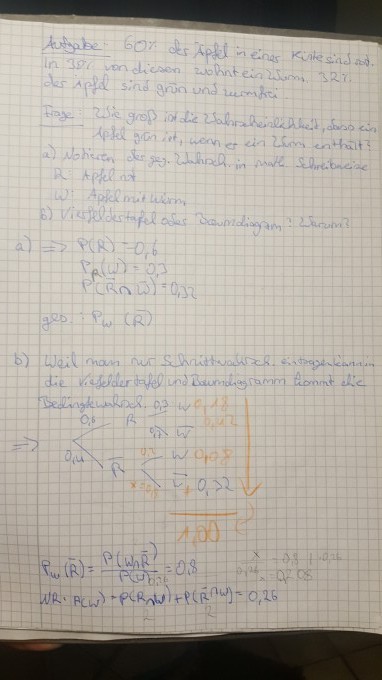 Aufgabe: 60% der Äpfel in einer Kiste sind rot.
In 30% von diesen wohnt ein Wurm. 32%
der Äpfel sind grün und wurmfrei.
Frage: Wie groß ist die Wahrscheinlichkeit, dass ein
Apfel grün ist, wenn er ein Wurm enthält?
a) Notieren der geg. Wahrsch. in math. Schreibweise
R: Apfel rot
W: Apfel mit Wurm
b) Vierfeldertafel oder Baumdiagram? Warum?
a) => P(R) = 0,6
P_R(W) = 0,3
P(R̅∩W̅) = 0,32
ges.: P_W (R̅)
b) Weil man nur Schnittwahrsch. eintragen kann in
die Vierfeldertafel und Baumdiagramm kommt die
Bedingte Wahrsch. 0,3 W 0,18
0,6 R 0,7 W̅ 0,42
=> 0,4 R̅ 0,2 W 0,08
0,8 W̅ 0,32
1,00
P_W(R̅) = P(W∩R̅) / P(W) =
NR: P(W) = P(R∩W) + P(R̅∩W) = 0,26